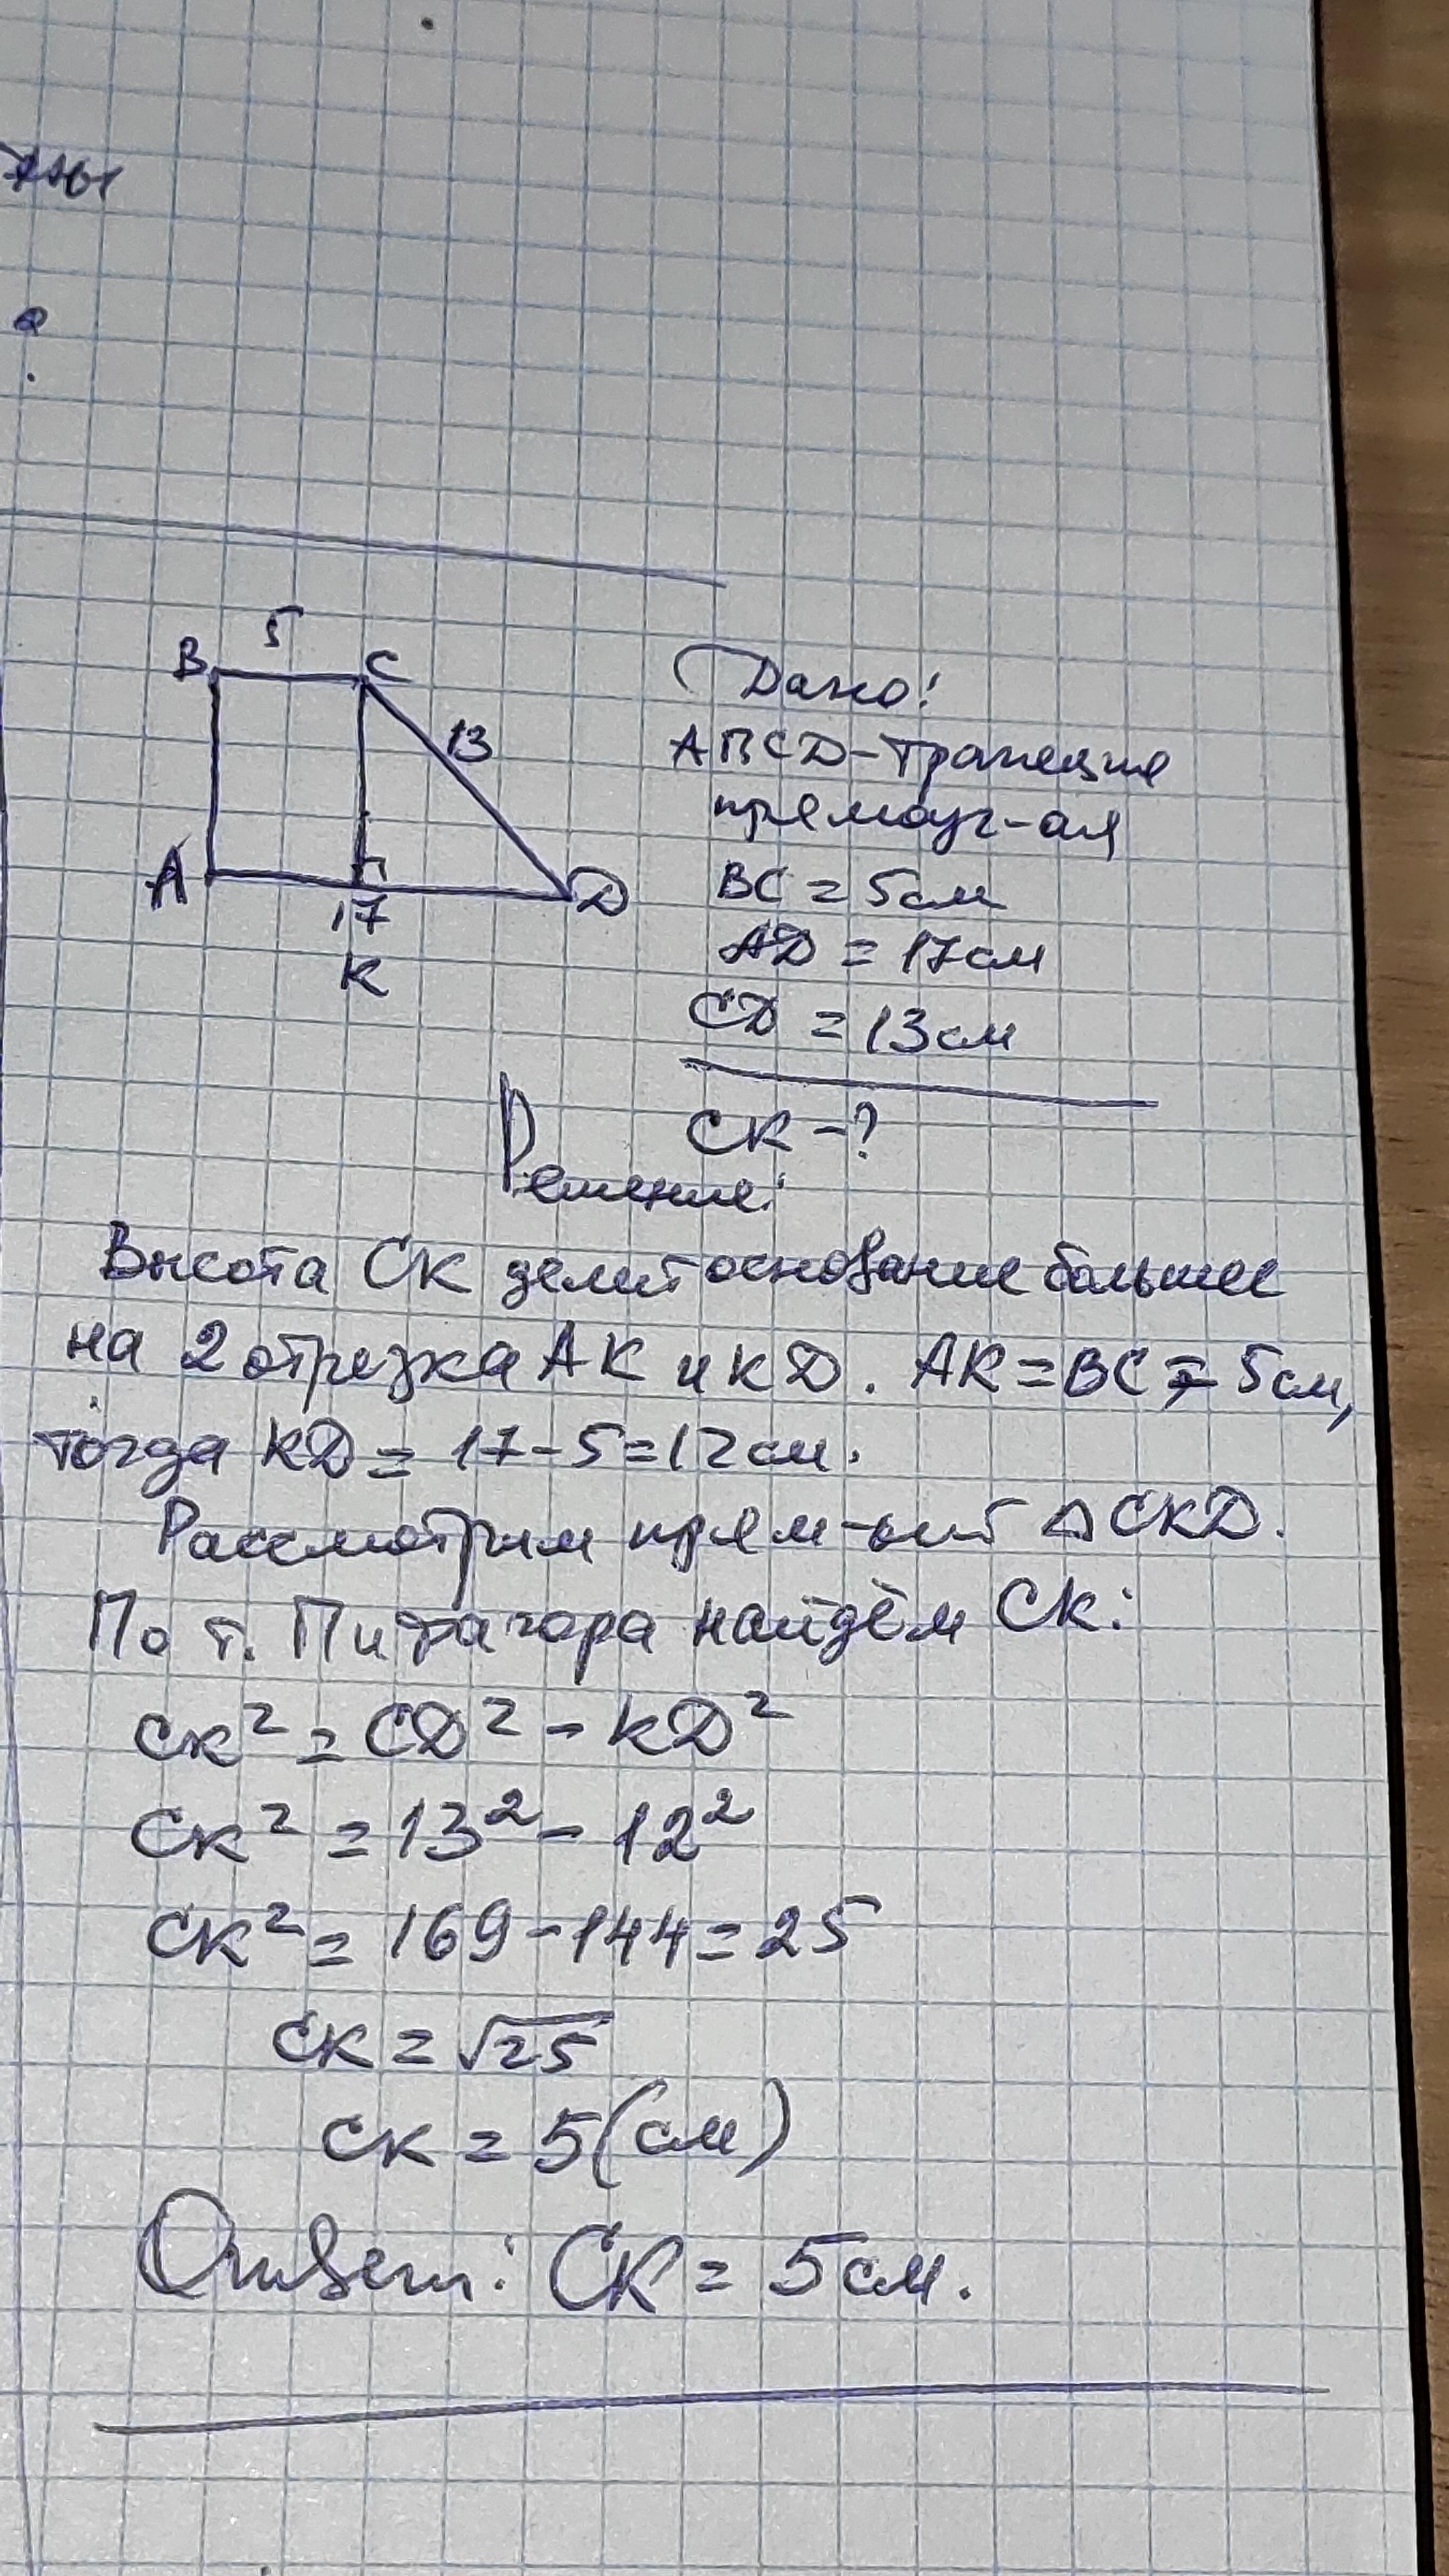 5
B C
13
A D
17
K
Дано:
ABCD-трапеция
прямоуг-ая
BC = 5см
AD = 17см
CD = 13см
CK -?
Решение:
Высота CK делит основание большее
на 2 отрезка AK и KD. AK = BC = 5см,
тогда KD = 17-5=12см.
Рассмотрим прям-ый △CKD.
По т. Питагора найдём CK:
CK² = CD² - KD²
CK² = 13² - 12²
CK² = 169-144=25
CK = √25
CK = 5(см)
Ответ: CK = 5см.